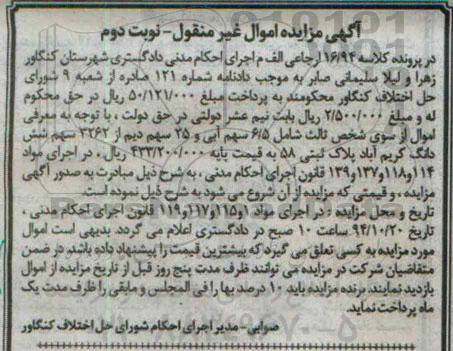 آگهی مزایده اموال غیر منقول - نوبت دوم
در پرونده کلاسه ۱۶/۹۴ ارجاعی الف م اجرای احکام مدنی دادگستری شهرستان کنگاور
زهرا و لیلا سلیمانی صابر به موجب دادنامه شماره ۱۲۱ صادره از شعبه ۹ شورای
حل اختلاف کنگاور محکومند به پرداخت مبلغ ۵۰/۱۲۱/۰۰۰ ریال در حق محکوم
له و مبلغ ۲/۵۰۰/۰۰۰ ریال بابت نیم عشر دولتی در حق دولت ، با توجه به معرفی
اموال از سوی شخص ثالث شامل ۶/۵ سهم آبی و ۲۵ سهم دیم از ۳۲۶۲ سهم شش
دانگ کریم آباد پلاک ثبتی ۵۸ به قیمت پایه ۴۳۳/۲۰۰/۰۰۰ ریال ، در اجرای مواد
۱۱۴و۱۱۸و۱۳۷و۱۳۹ قانون اجرای احکام مدنی ، به شرح ذیل مبادرت به صدور آگهی
مزایده ، و قیمتی که مزایده از آن شروع می شود به شرح ذیل نموده است.
تاریخ و محل مزایده : در اجرای مواد ۱و۱۱۵و۱۱۷و۱۱۹ قانون اجرای احکام مدنی ،
تاریخ ۹۴/۱۰/۲۰ ساعت ۱۰ صبح در دادگستری اعلام می گردد. بدیهی است اموال
مورد مزایده به کسی تعلق می گیرد که بیشترین قیمت را پیشنهاد داده باشد. در ضمن
متقاضیان شرکت در مزایده می توانند ظرف مدت پنج روز قبل از تاریخ مزایده از اموال
بازدید نمایند. برنده مزایده باید ۱۰ درصد بها را فی المجلس و مابقی را ظرف مدت یک
ماه پرداخت نماید.
صوابی - مدیر اجرای احکام شورای حل اختلاف کنگاور